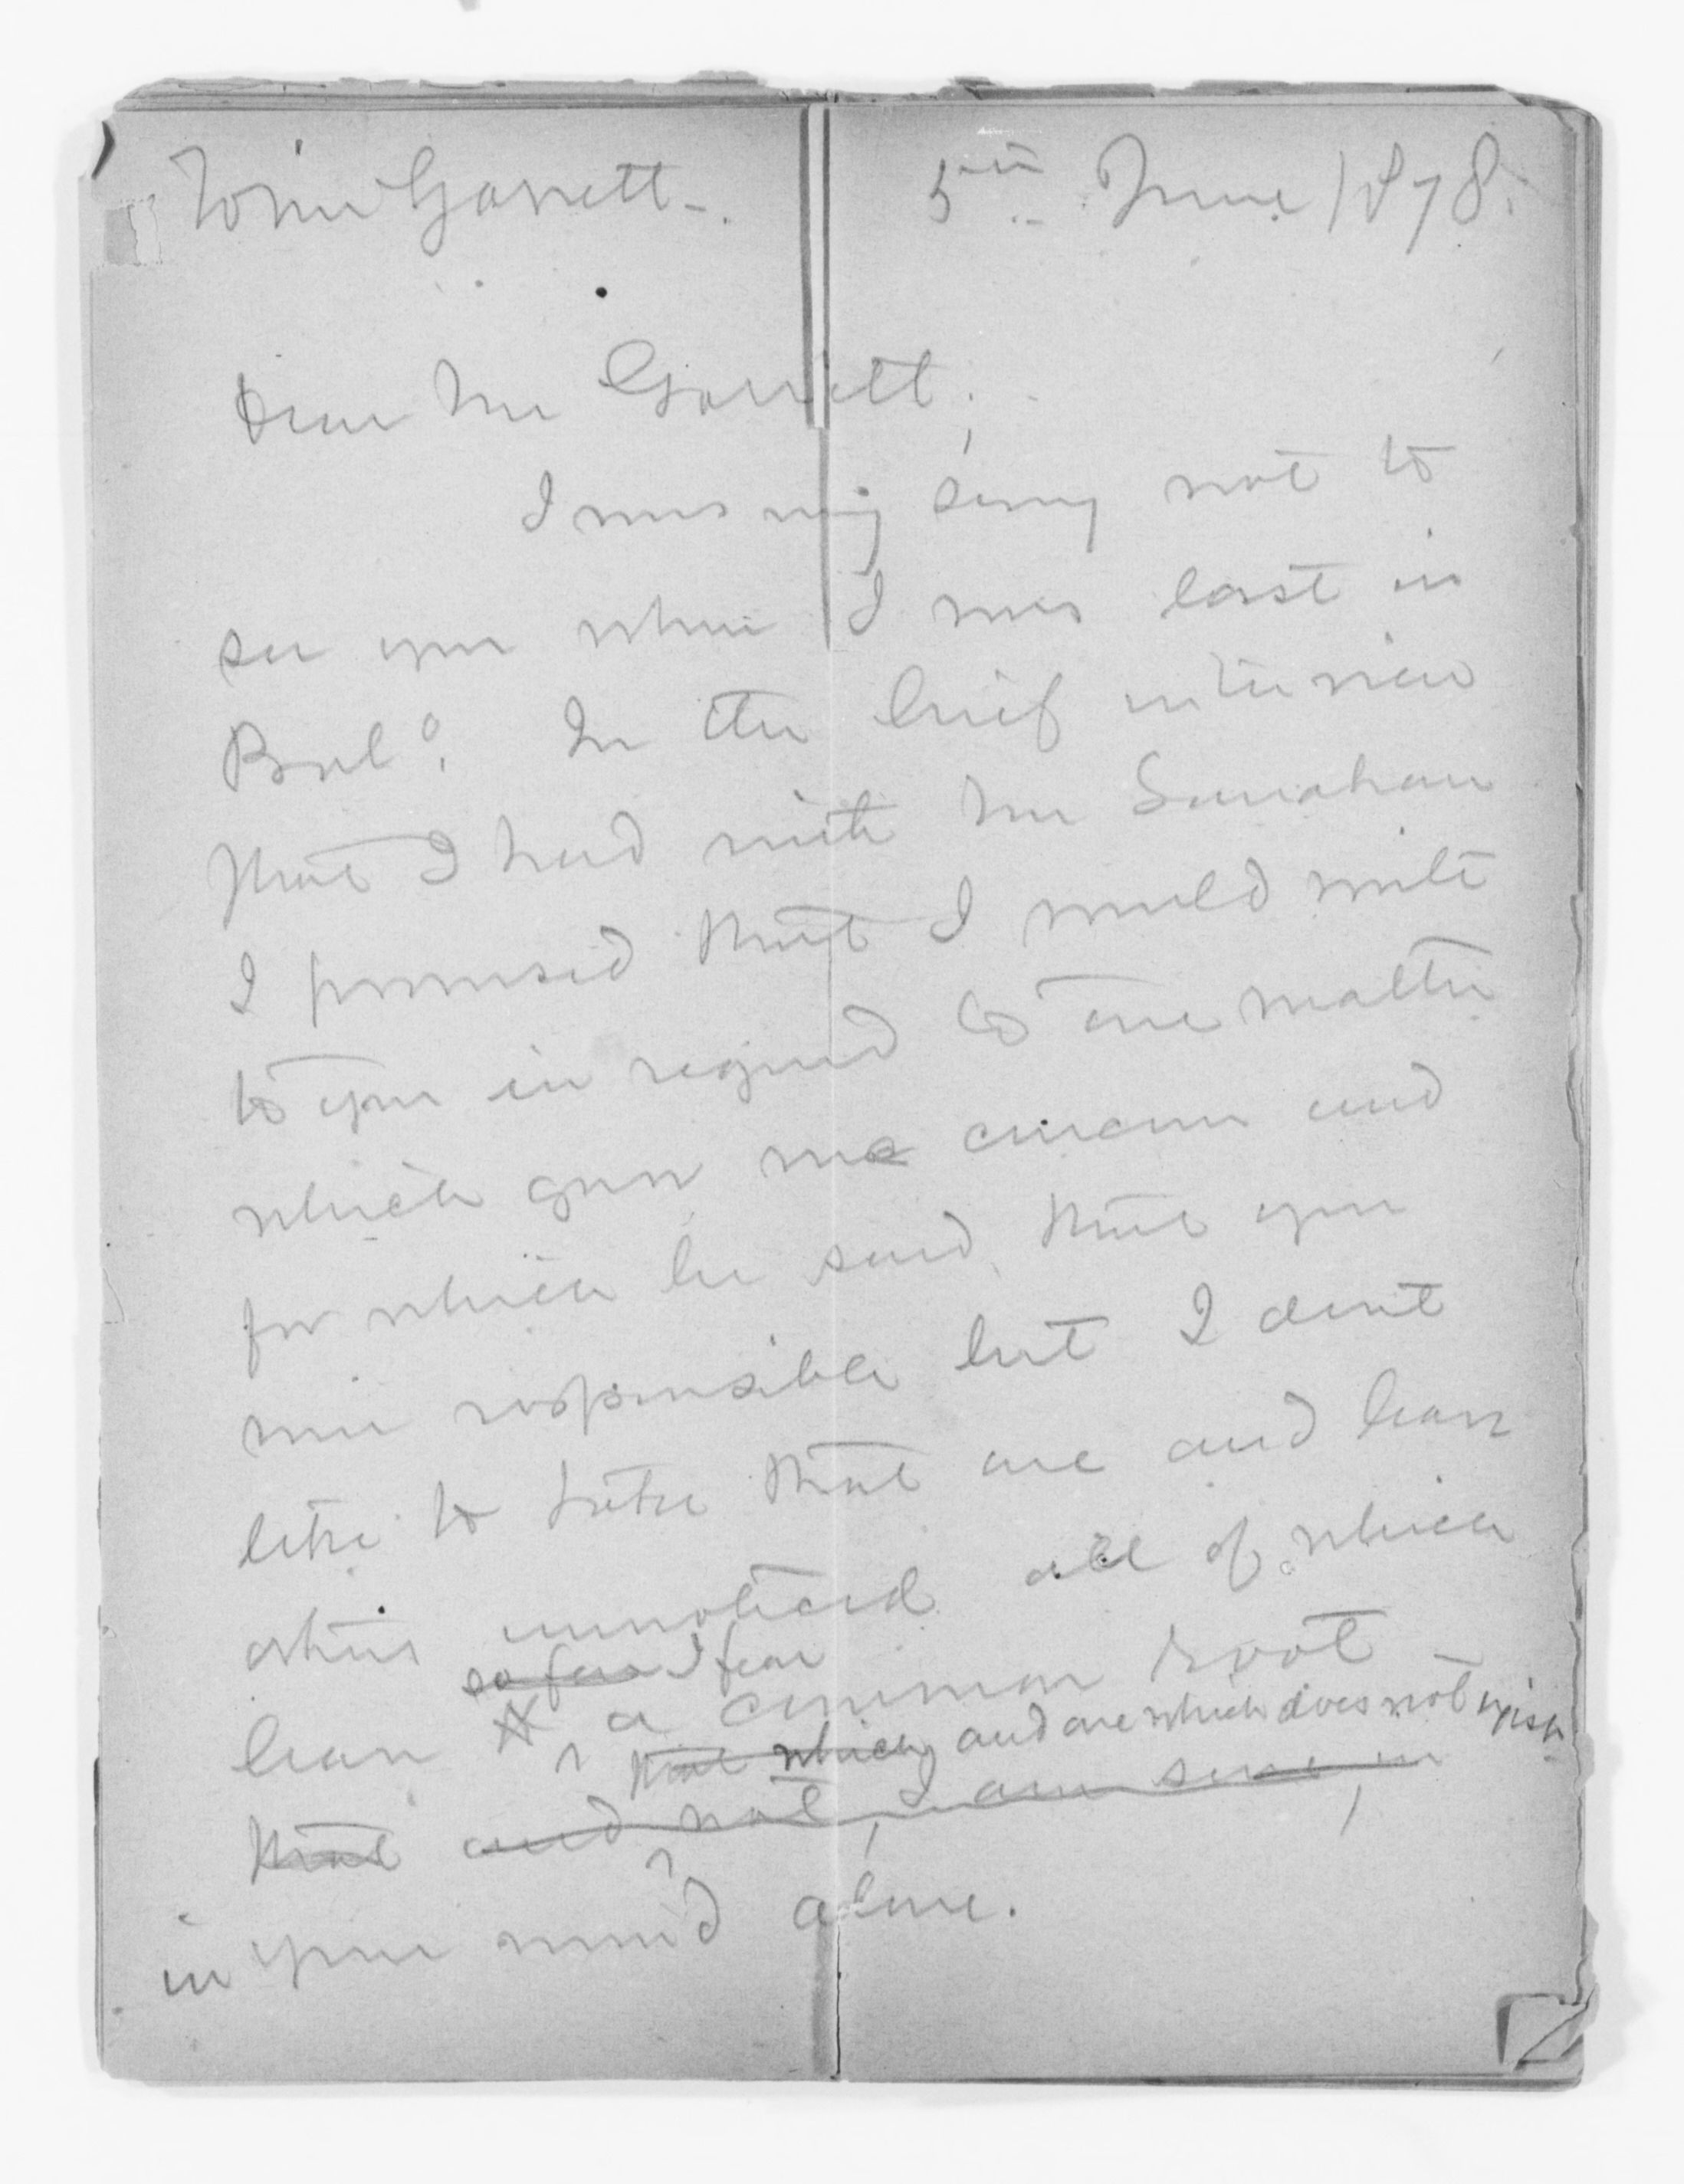 Wm Garrett 5th June 1878.
Dear Mr Garrett,
I was very sorry not to
see you when I was last in
Balo. In the brief interview
that I had with Mr
I promised that I would write
to you in regard to one matter
which gave me concern and
for which he said that you
were responsible but I dont
like to take that one and leave
others unnoticed all of which
so far I fear
have a common root
that which and one which does not exist
that and not, I am sure, in
in your mind alone.